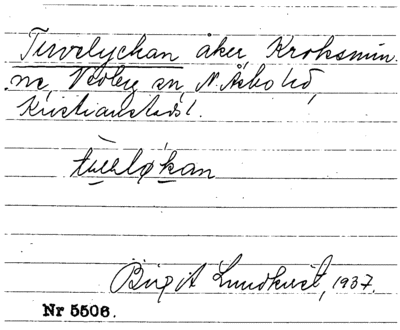 Tuvelyckan åker, Kroksmin-
ne, Vedby sn N. Åsbo hd,
Kristianstads l.
Birgit Lundkvist, 1937.
Nr 5506.